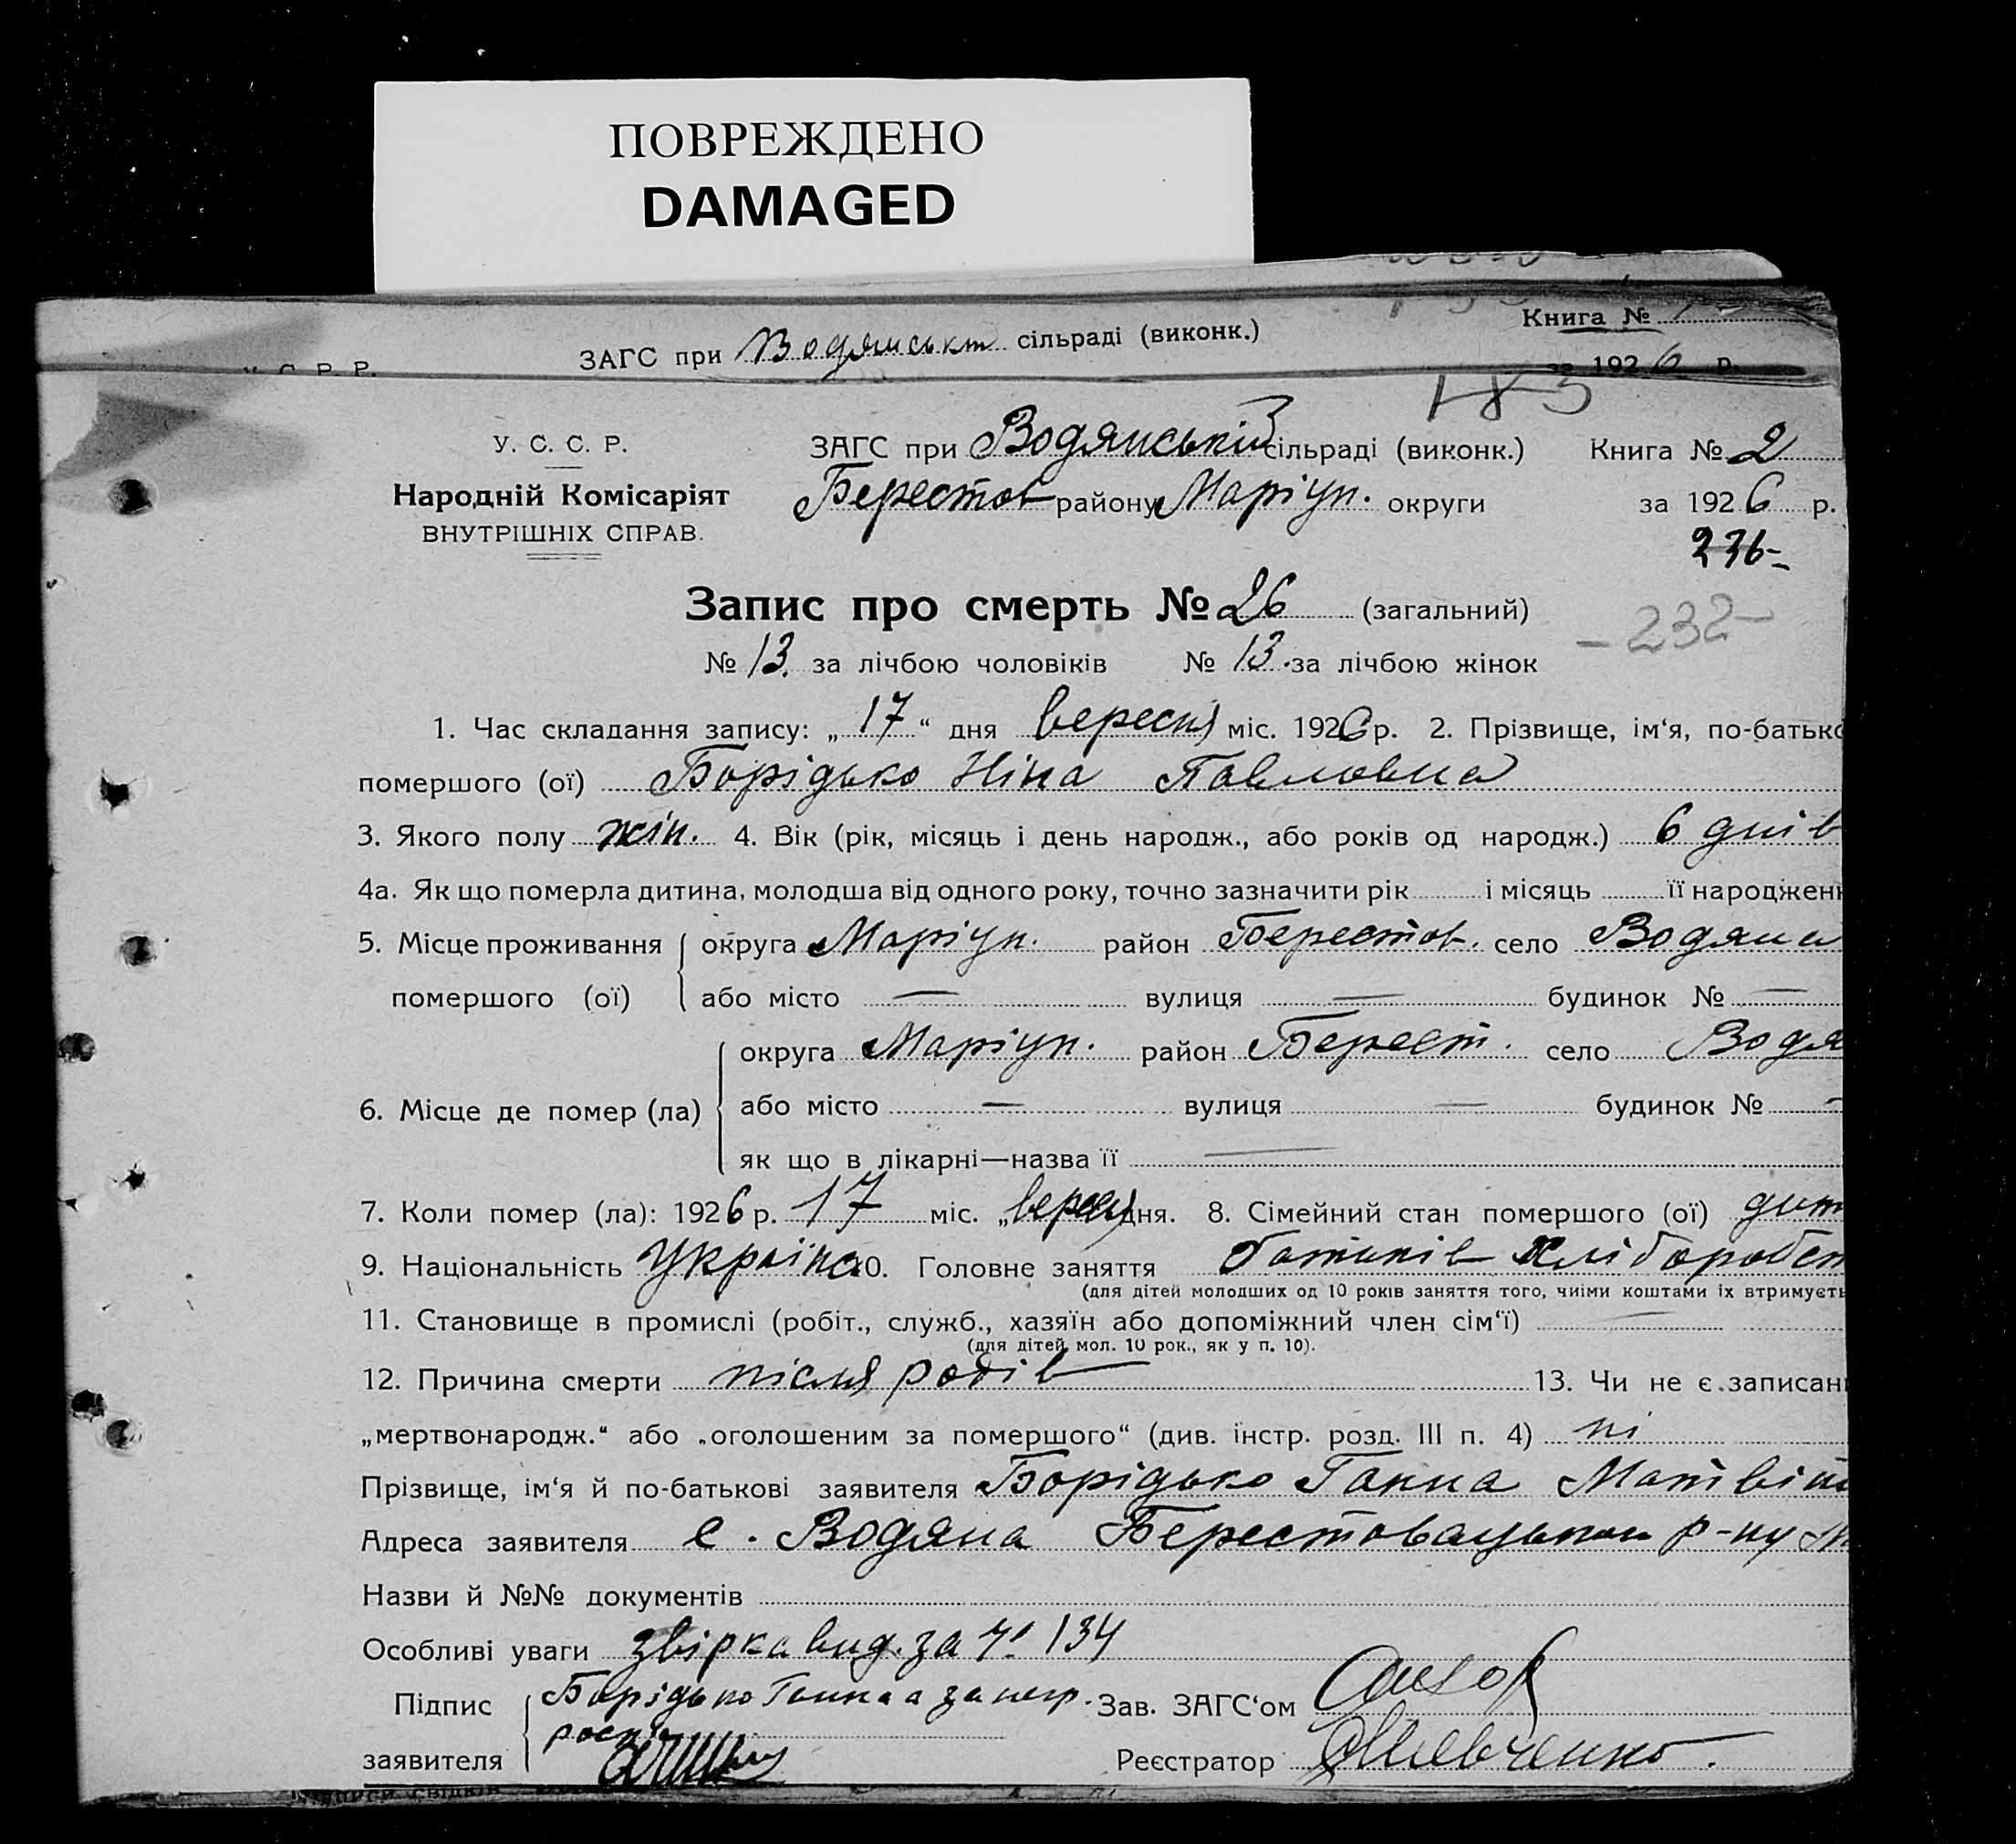 ПОВРЕЖДЕНО
DAMAGED
ЗАГС при Водянськ сільраді (виконк.) Книга №
У. С. Р. Р. за 1926 р.
У. С. С. Р. ЗАГС при Водянській сільраді (виконк.) Книга № 2
Народній Комісаріят Берестов району Маріуп. округи за 1926 р.
ВНУТРІШНІХ СПРАВ.
236-
Запис про смерть № 26 (загальний)
-232-
№ 13. за лічбою чоловіків № 13. за лічбою жінок
1. Час складання запису: „17“ дня вересня міс. 1926 р. 2. Прізвище, ім‘я, по-батько
помершого (ої) Борідько Ніна Павловна
3. Якого полу жін. 4. Вік (рік, місяць і день народж., або років од народж.) 6 днів
4а. Як що померла дитина, молодша від одного року, точно зазначити рік і місяць її народжен
5. Місце проживання округа Маріуп. район Берестов. село Водяна
помершого (ої) або місто — вулиця — будинок № —
округа Маріуп. район Берест. село Водя
6. Місце де помер (ла) або місто — вулиця — будинок № -
як що в лікарні—назва її —
7. Коли помер (ла): 1926 р. 17 міс. „вересня дня. 8. Сімейний стан помершого (ої) дит
9. Національність Україн 10. Головне заняття батьків хліборобст
(для дітей молодших од 10 років заняття того, чиїми коштами їх втримуєть
11. Становище в промислі (робіт., служб., хазяїн або допоміжний член сім‘ї) —
(для дітей мол. 10 рок., як у п. 10).
12. Причина смерти після родів 13. Чи не є записан
„мертвонародж.“ або „оголошеним за помершого“ (див. інстр. розд. III п. 4) ні
Прізвище, ім‘я й по-батькові заявителя Борідько Ганна Матвіїв
Адреса заявителя с. Водяна Берестовацьким р-ну М
Назви й №№ документів
Особливі уваги звірка вид. за ч. 134
Підпис Борідько Ганна а за негр. Зав. ЗАГС‘ом
заявителя Реєстратор Шевченко.